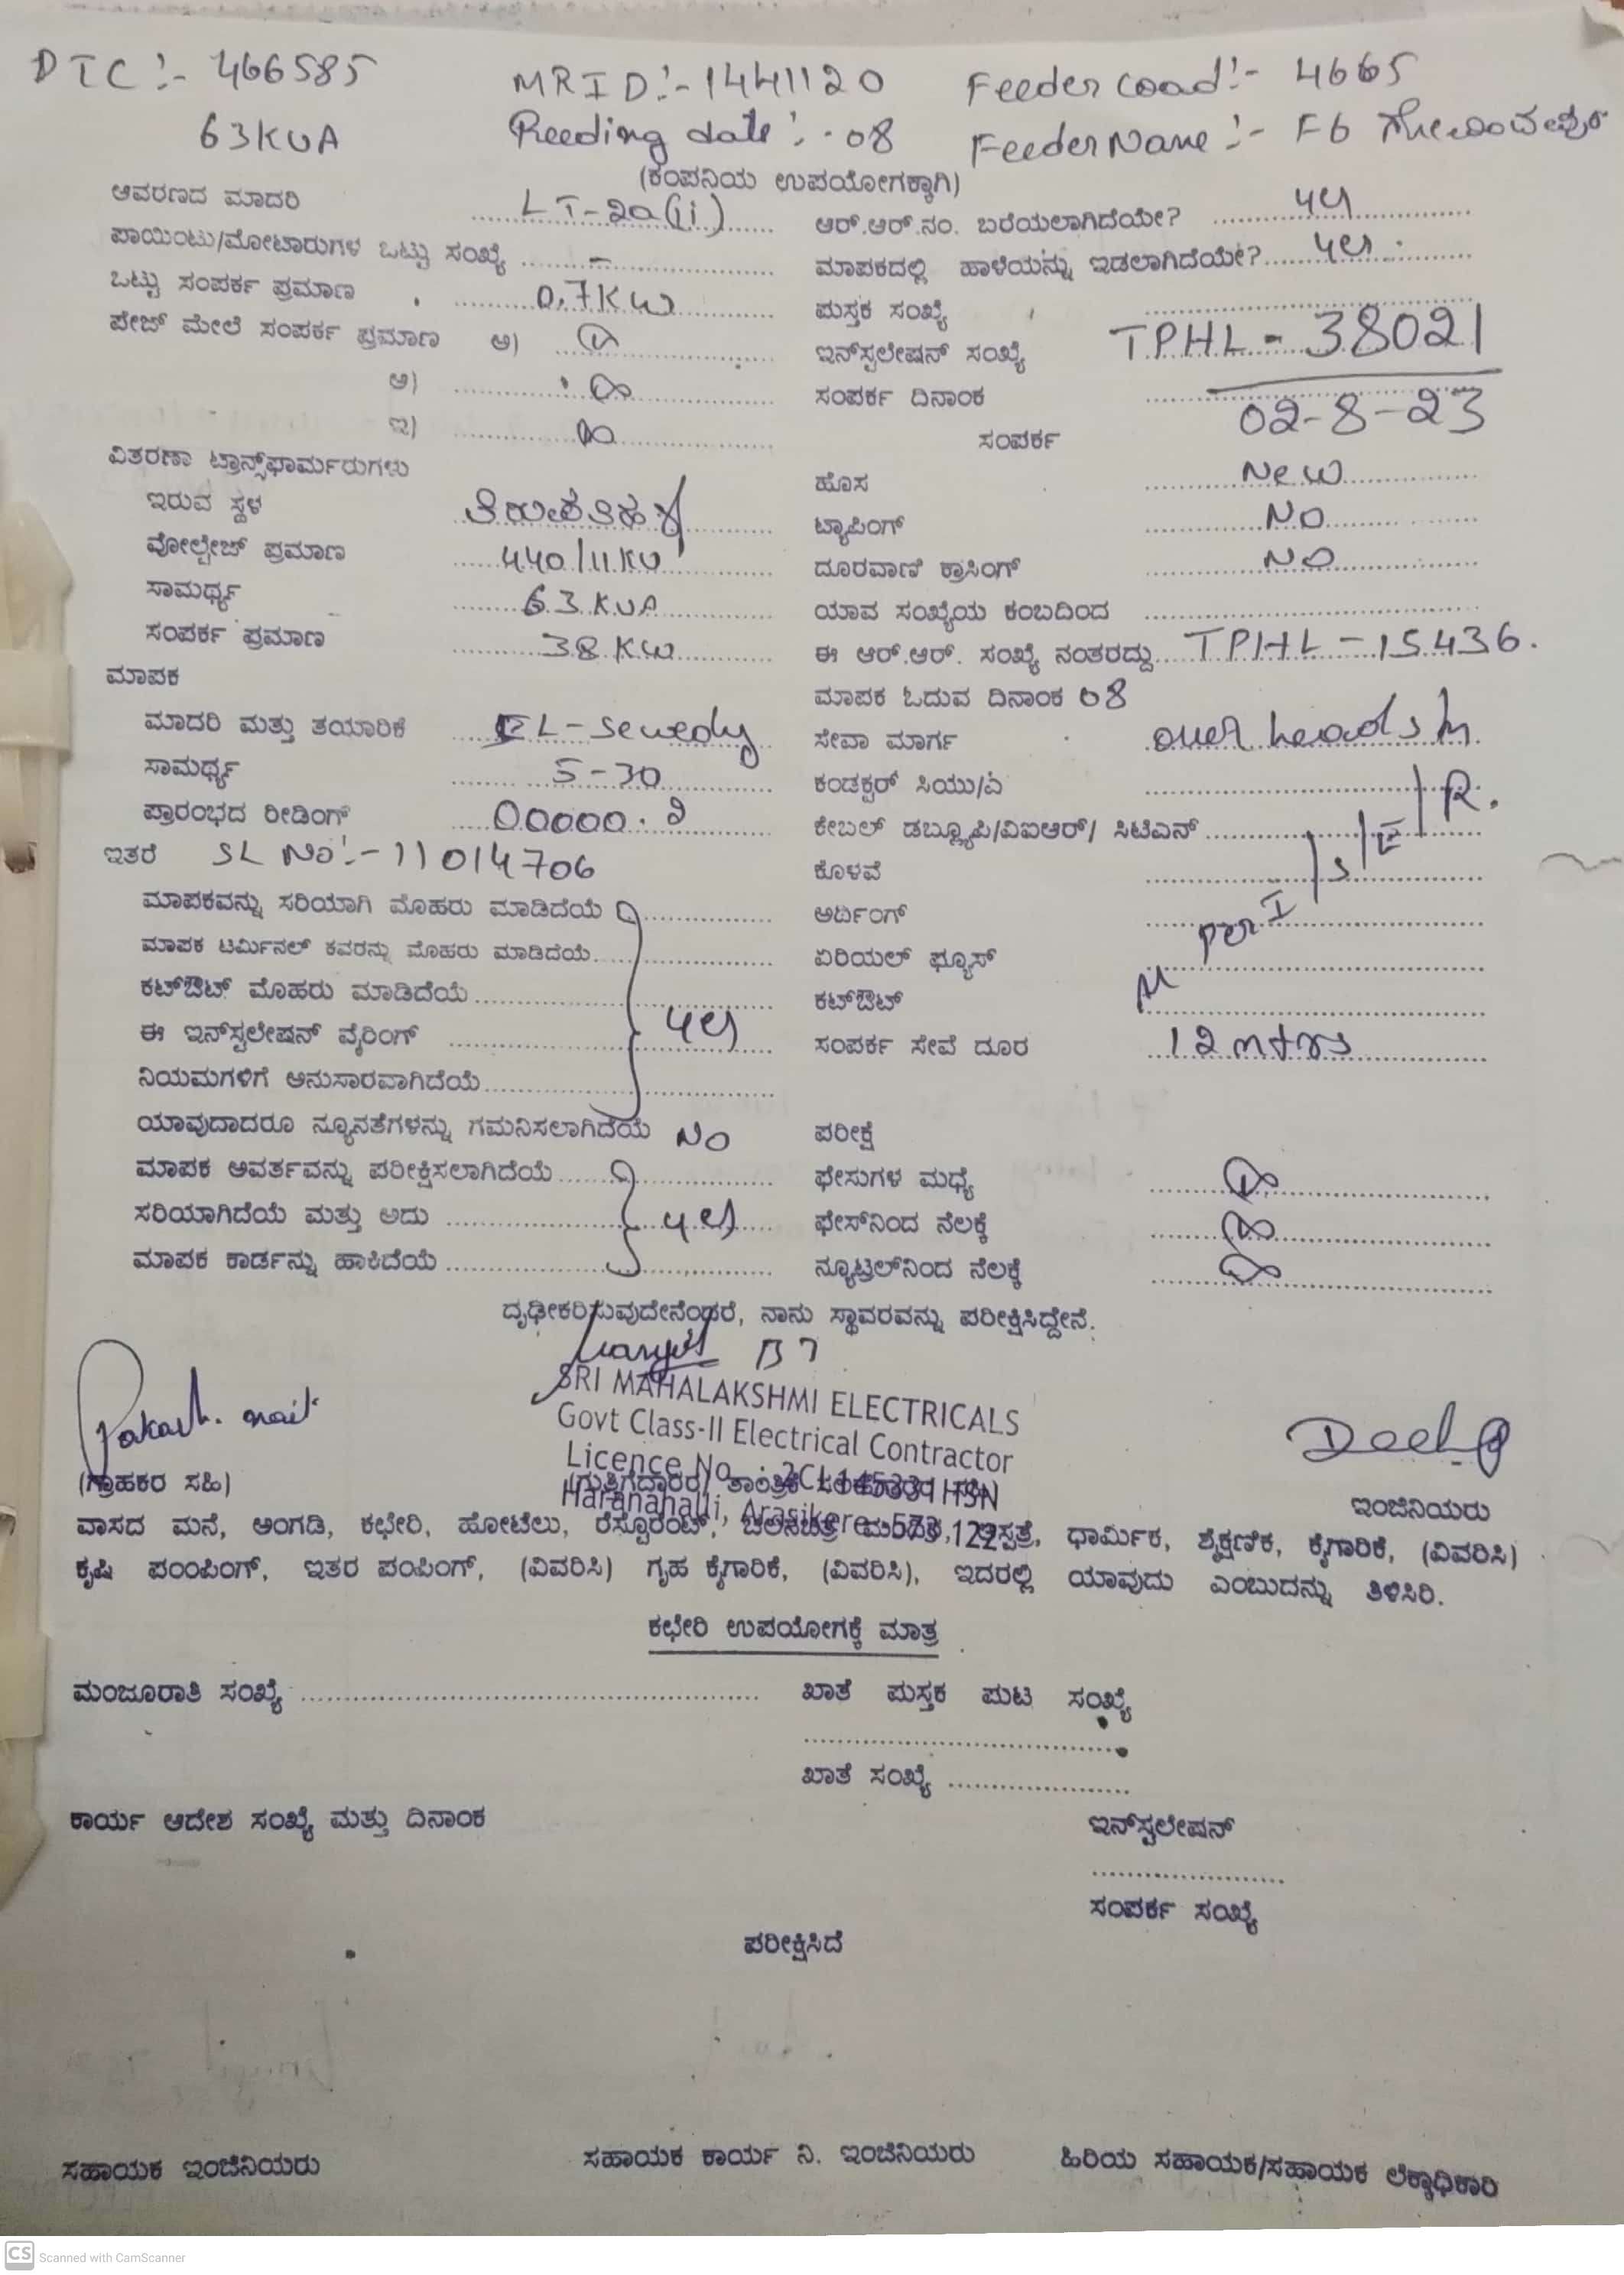 DTC:- 466585 MRID:- 1441120 Feeder coad:- 4665
63KVA Reeding date:- 08 Feeder Name:- F6
(ಕಂಪನಿಯ ಉಪಯೋಗಕ್ಕಾಗಿ)
ಆವರಣದ ಮಾದರಿ LT-2a(ii)
ಪಾಯಿಂಟು/ಮೋಟಾರುಗಳ ಒಟ್ಟು ಸಂಖ್ಯೆ -
ಒಟ್ಟು ಸಂಪರ್ಕ ಪ್ರಮಾಣ 0.7KW
ಪೇಜ್ ಮೇಲೆ ಸಂಪರ್ಕ ಪ್ರಮಾಣ ಅ)
ಆ)
ಇ)
ವಿತರಣಾ ಟ್ರಾನ್ಸ್‌ಫಾರ್ಮರುಗಳು
ಇರುವ ಸ್ಥಳ
ವೋಲ್ಟೇಜ್ ಪ್ರಮಾಣ 440/11KV
ಸಾಮರ್ಥ್ಯ 63 KVA
ಸಂಪರ್ಕ ಪ್ರಮಾಣ 38 KW
ಮಾಪಕ
ಮಾದರಿ ಮತ್ತು ತಯಾರಿಕೆ EL-sewedy
ಸಾಮರ್ಥ್ಯ 5-30
ಪ್ರಾರಂಭದ ರೀಡಿಂಗ್ 00000.2
ಇತರೆ SL No:- 11014706
ಮಾಪಕವನ್ನು ಸರಿಯಾಗಿ ಮೊಹರು ಮಾಡಿದೆಯೆ
ಮಾಪಕ ಟರ್ಮಿನಲ್ ಕವರನ್ನು ಮೊಹರು ಮಾಡಿದೆಯೆ
ಕಟ್‌ಔಟ್ ಮೊಹರು ಮಾಡಿದೆಯೆ
ಈ ಇನ್‌ಸ್ಟಲೇಷನ್ ವೈರಿಂಗ್ yes
ನಿಯಮಗಳಿಗೆ ಅನುಸಾರವಾಗಿದೆಯೆ
ಯಾವುದಾದರೂ ನ್ಯೂನತೆಗಳನ್ನು ಗಮನಿಸಲಾಗಿದೆಯೆ NO
ಮಾಪಕ ಆವರ್ತವನ್ನು ಪರೀಕ್ಷಿಸಲಾಗಿದೆಯೆ
ಸರಿಯಾಗಿದೆಯೆ ಮತ್ತು ಅದು yes
ಮಾಪಕ ಕಾರ್ಡನ್ನು ಹಾಕಿದೆಯೆ
ಆರ್.ಆರ್.ನಂ. ಬರೆಯಲಾಗಿದೆಯೇ? yes
ಮಾಪಕದಲ್ಲಿ ಹಾಳೆಯನ್ನು ಇಡಲಾಗಿದೆಯೇ? yes
ಪುಸ್ತಕ ಸಂಖ್ಯೆ
ಇನ್‌ಸ್ಟಲೇಷನ್ ಸಂಖ್ಯೆ TPHL-38021
ಸಂಪರ್ಕ ದಿನಾಂಕ 02-8-23
ಸಂಪರ್ಕ
ಹೊಸ New
ಟ್ಯಾಪಿಂಗ್ NO
ದೂರವಾಣಿ ಕ್ರಾಸಿಂಗ್ NO
ಯಾವ ಸಂಖ್ಯೆಯ ಕಂಬದಿಂದ
ಈ ಆರ್.ಆರ್. ಸಂಖ್ಯೆ ನಂತರದ್ದು TPHL-15436.
ಮಾಪಕ ಓದುವ ದಿನಾಂಕ 08
ಸೇವಾ ಮಾರ್ಗ over head
ಕಂಡಕ್ಟರ್ ಸಿಯು/ಎ
ಕೇಬಲ್ ಡಬ್ಲ್ಯೂಪಿ/ವಿಐಆರ್/ ಸಿಟಿಎನ್
ಕೊಳವೆ
ಅರ್ದಿಂಗ್
ಏರಿಯಲ್ ಫ್ಯೂಸ್
ಕಟ್‌ಔಟ್
ಸಂಪರ್ಕ ಸೇವೆ ದೂರ 12 mtrs
ಪರೀಕ್ಷೆ
ಫೇಸುಗಳ ಮಧ್ಯೆ
ಫೇಸ್‌ನಿಂದ ನೆಲಕ್ಕೆ
ನ್ಯೂಟ್ರಲ್‌ನಿಂದ ನೆಲಕ್ಕೆ
ದೃಢೀಕರಿಸುವುದೇನೆಂದರೆ, ನಾನು ಸ್ಥಾವರವನ್ನು ಪರೀಕ್ಷಿಸಿದ್ದೇನೆ.
SRI MAHALAKSHMI ELECTRICALS
Govt Class-II Electrical Contractor
Licence No.
Haranahalli, Arasikere-573 122
(ಗ್ರಾಹಕರ ಸಹಿ)
ಇಂಜಿನಿಯರು
ವಾಸದ ಮನೆ, ಅಂಗಡಿ, ಕಛೇರಿ, ಹೋಟೆಲು, ರೆಸ್ಟೊರೆಂಟ್, ಚಲನಚಿತ್ರ ಮಂದಿರ, ಆಸ್ಪತ್ರೆ, ಧಾರ್ಮಿಕ, ಶೈಕ್ಷಣಿಕ, ಕೈಗಾರಿಕೆ, (ವಿವರಿಸಿ)
ಕೃಷಿ ಪಂಂಪಿಂಗ್, ಇತರ ಪಂಪಿಂಗ್, (ವಿವರಿಸಿ) ಗೃಹ ಕೈಗಾರಿಕೆ, (ವಿವರಿಸಿ), ಇದರಲ್ಲಿ ಯಾವುದು ಎಂಬುದನ್ನು ತಿಳಿಸಿರಿ.
ಕಛೇರಿ ಉಪಯೋಗಕ್ಕೆ ಮಾತ್ರ
ಮಂಜೂರಾತಿ ಸಂಖ್ಯೆ ಖಾತೆ ಪುಸ್ತಕ ಪುಟ ಸಂಖ್ಯೆ
ಖಾತೆ ಸಂಖ್ಯೆ
ಕಾರ್ಯ ಆದೇಶ ಸಂಖ್ಯೆ ಮತ್ತು ದಿನಾಂಕ ಇನ್‌ಸ್ಟಲೇಷನ್
ಸಂಪರ್ಕ ಸಂಖ್ಯೆ
ಪರೀಕ್ಷಿಸಿದೆ
ಸಹಾಯಕ ಇಂಜಿನಿಯರು ಸಹಾಯಕ ಕಾರ್ಯ ನಿ. ಇಂಜಿನಿಯರು ಹಿರಿಯ ಸಹಾಯಕ/ಸಹಾಯಕ ಲೆಕ್ಕಾಧಿಕಾರಿ
CS Scanned with CamScanner